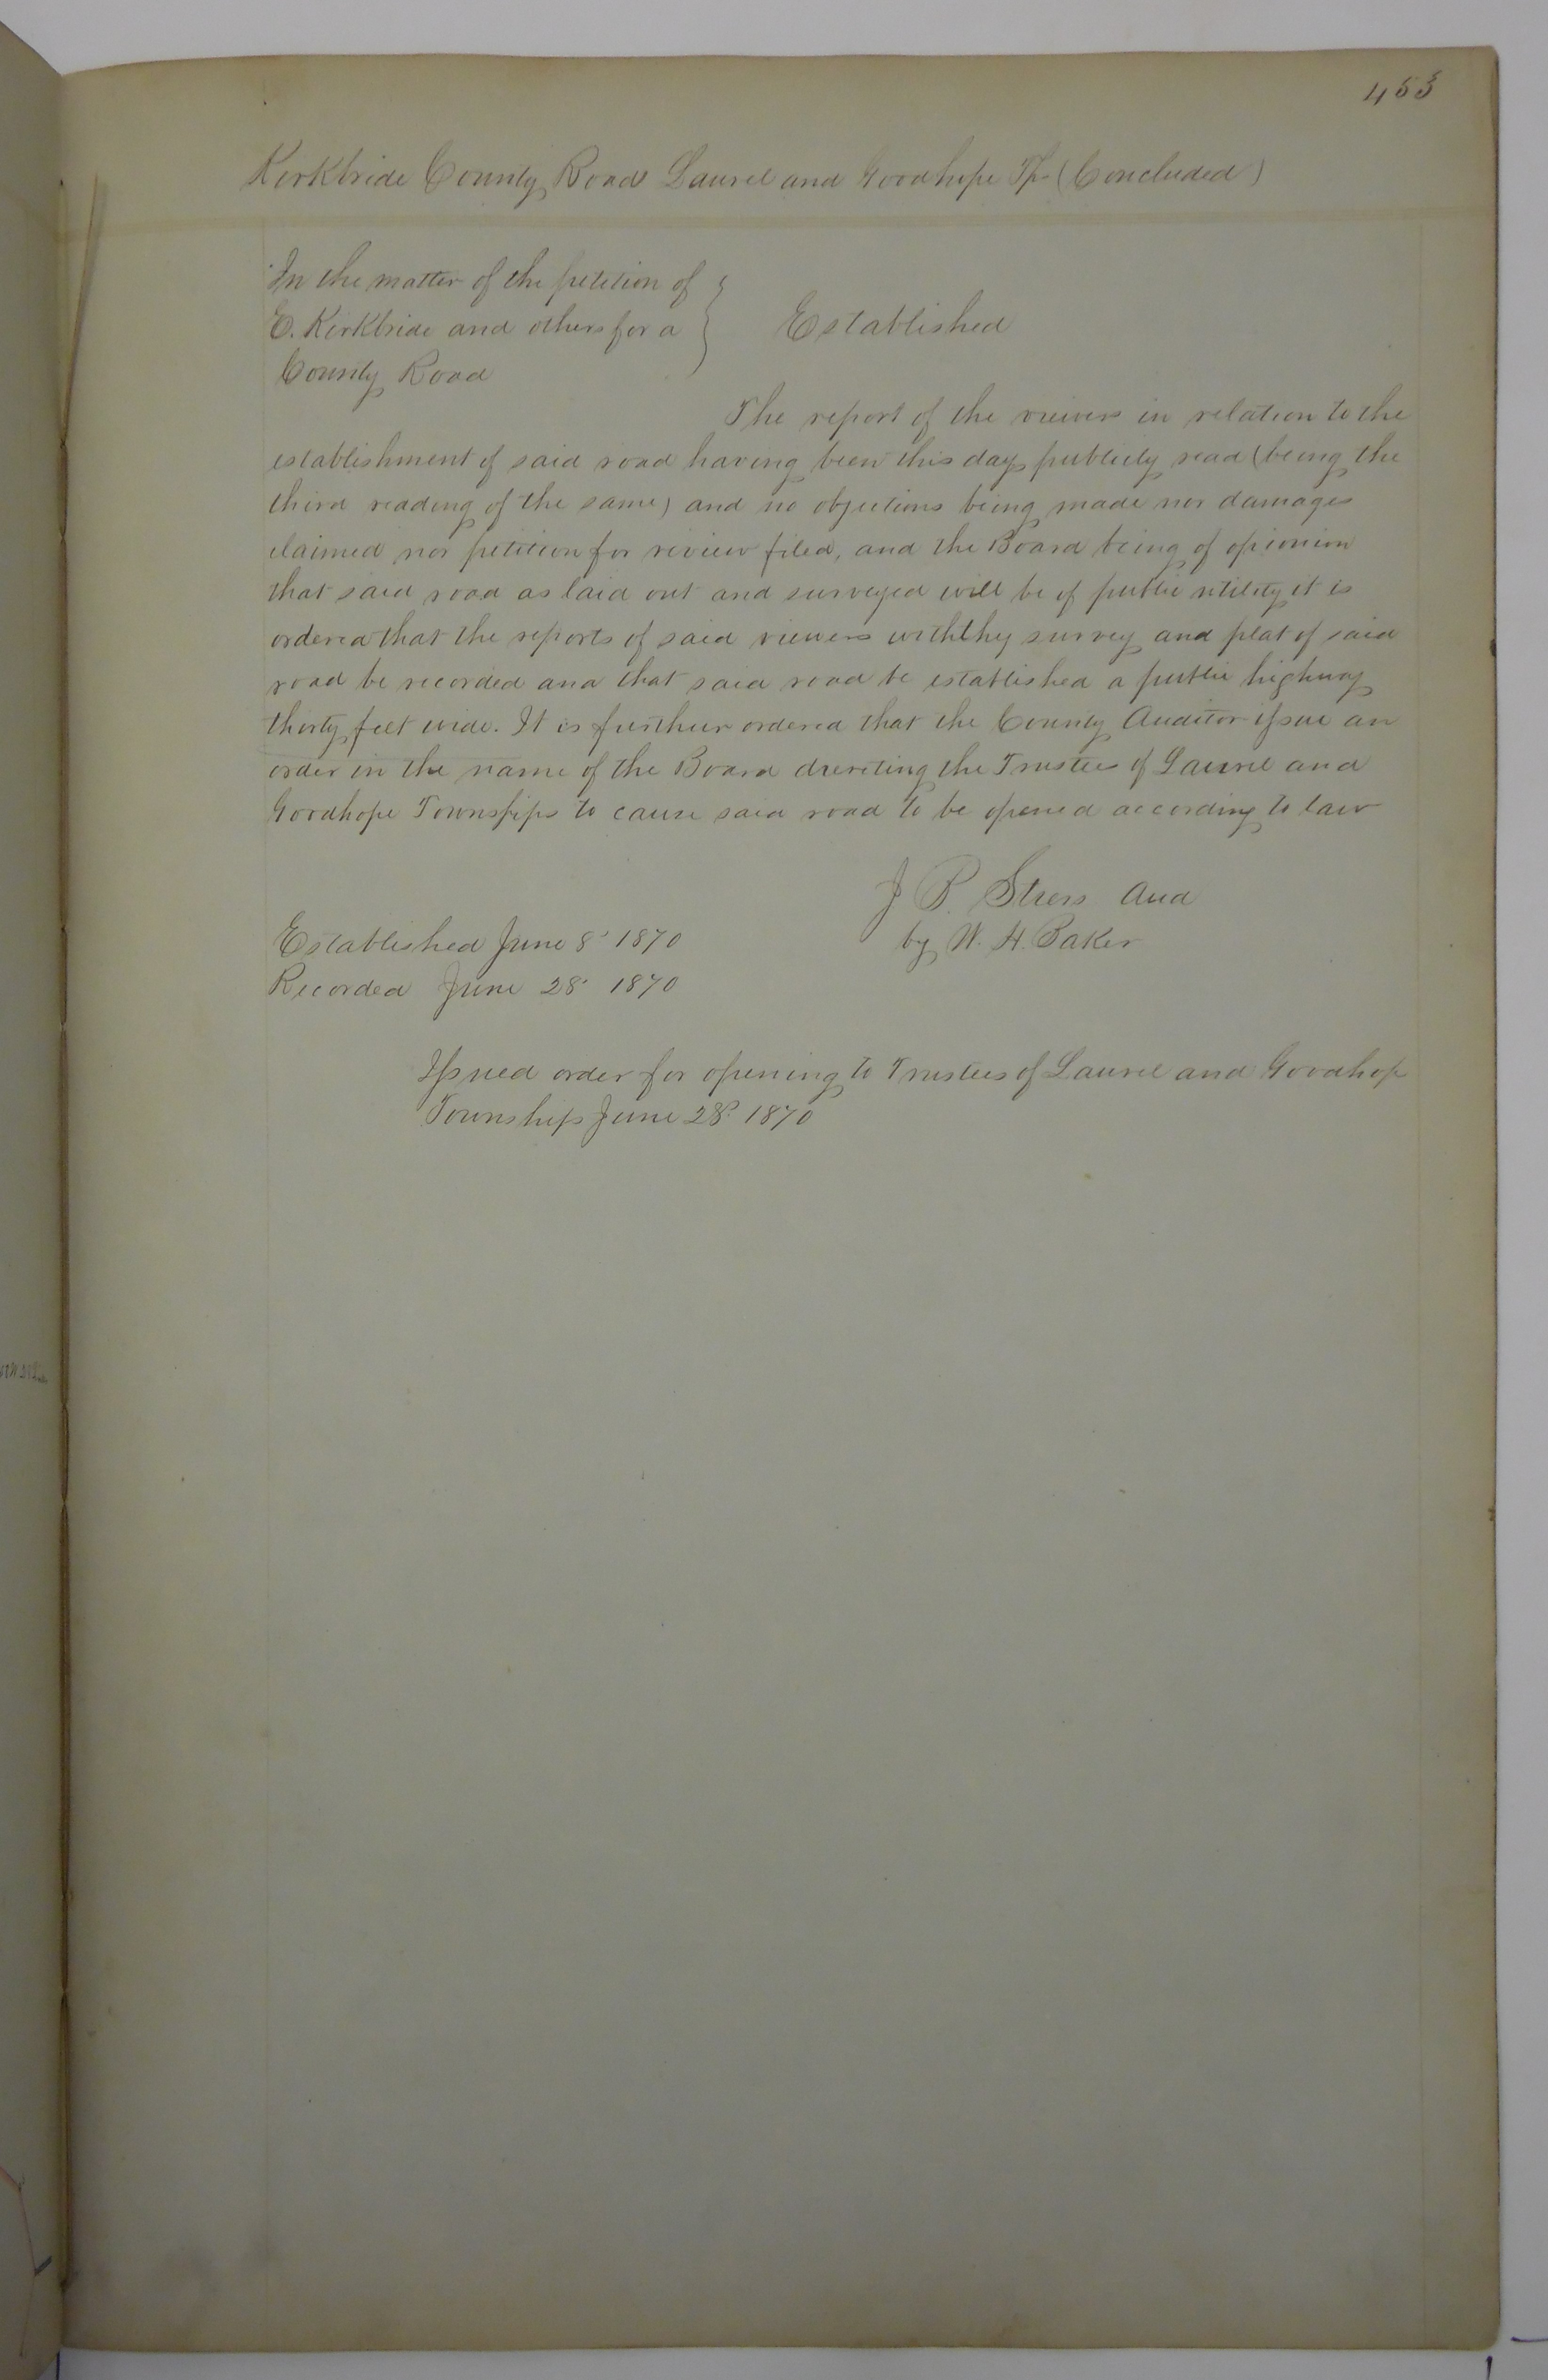 453
Kirkbride County Road Laurel and Goodhope Tp (Concluded)
In the matter of the petition of
E. Kirkbride and others for a
County Road
Established
The report of the viewers in relation to the
establishment of said road having been this day publicly read (being the
third reading of the same) and no objections being made nor damages
claimed nor petition for review filed, and the Board being of opionion
that said road as laid out and surveyed will be of public utility it is
ordered that the reports of said viewers with the survey and plat of said
road be recorded and that said road be established a public highway
thirty feet wide. It is further ordered that the County Auditor issue an
order in the name of the Board directing the Trustees of Laurel and
Goodhope Townships to cause said road to be opened according to law
J P. Aud
by W. H. Baker
Established June 8 1870
Recorded June 28 1870
Issued order for opening to Trustees of Laurel and Goodhop
Townships June 28 1870